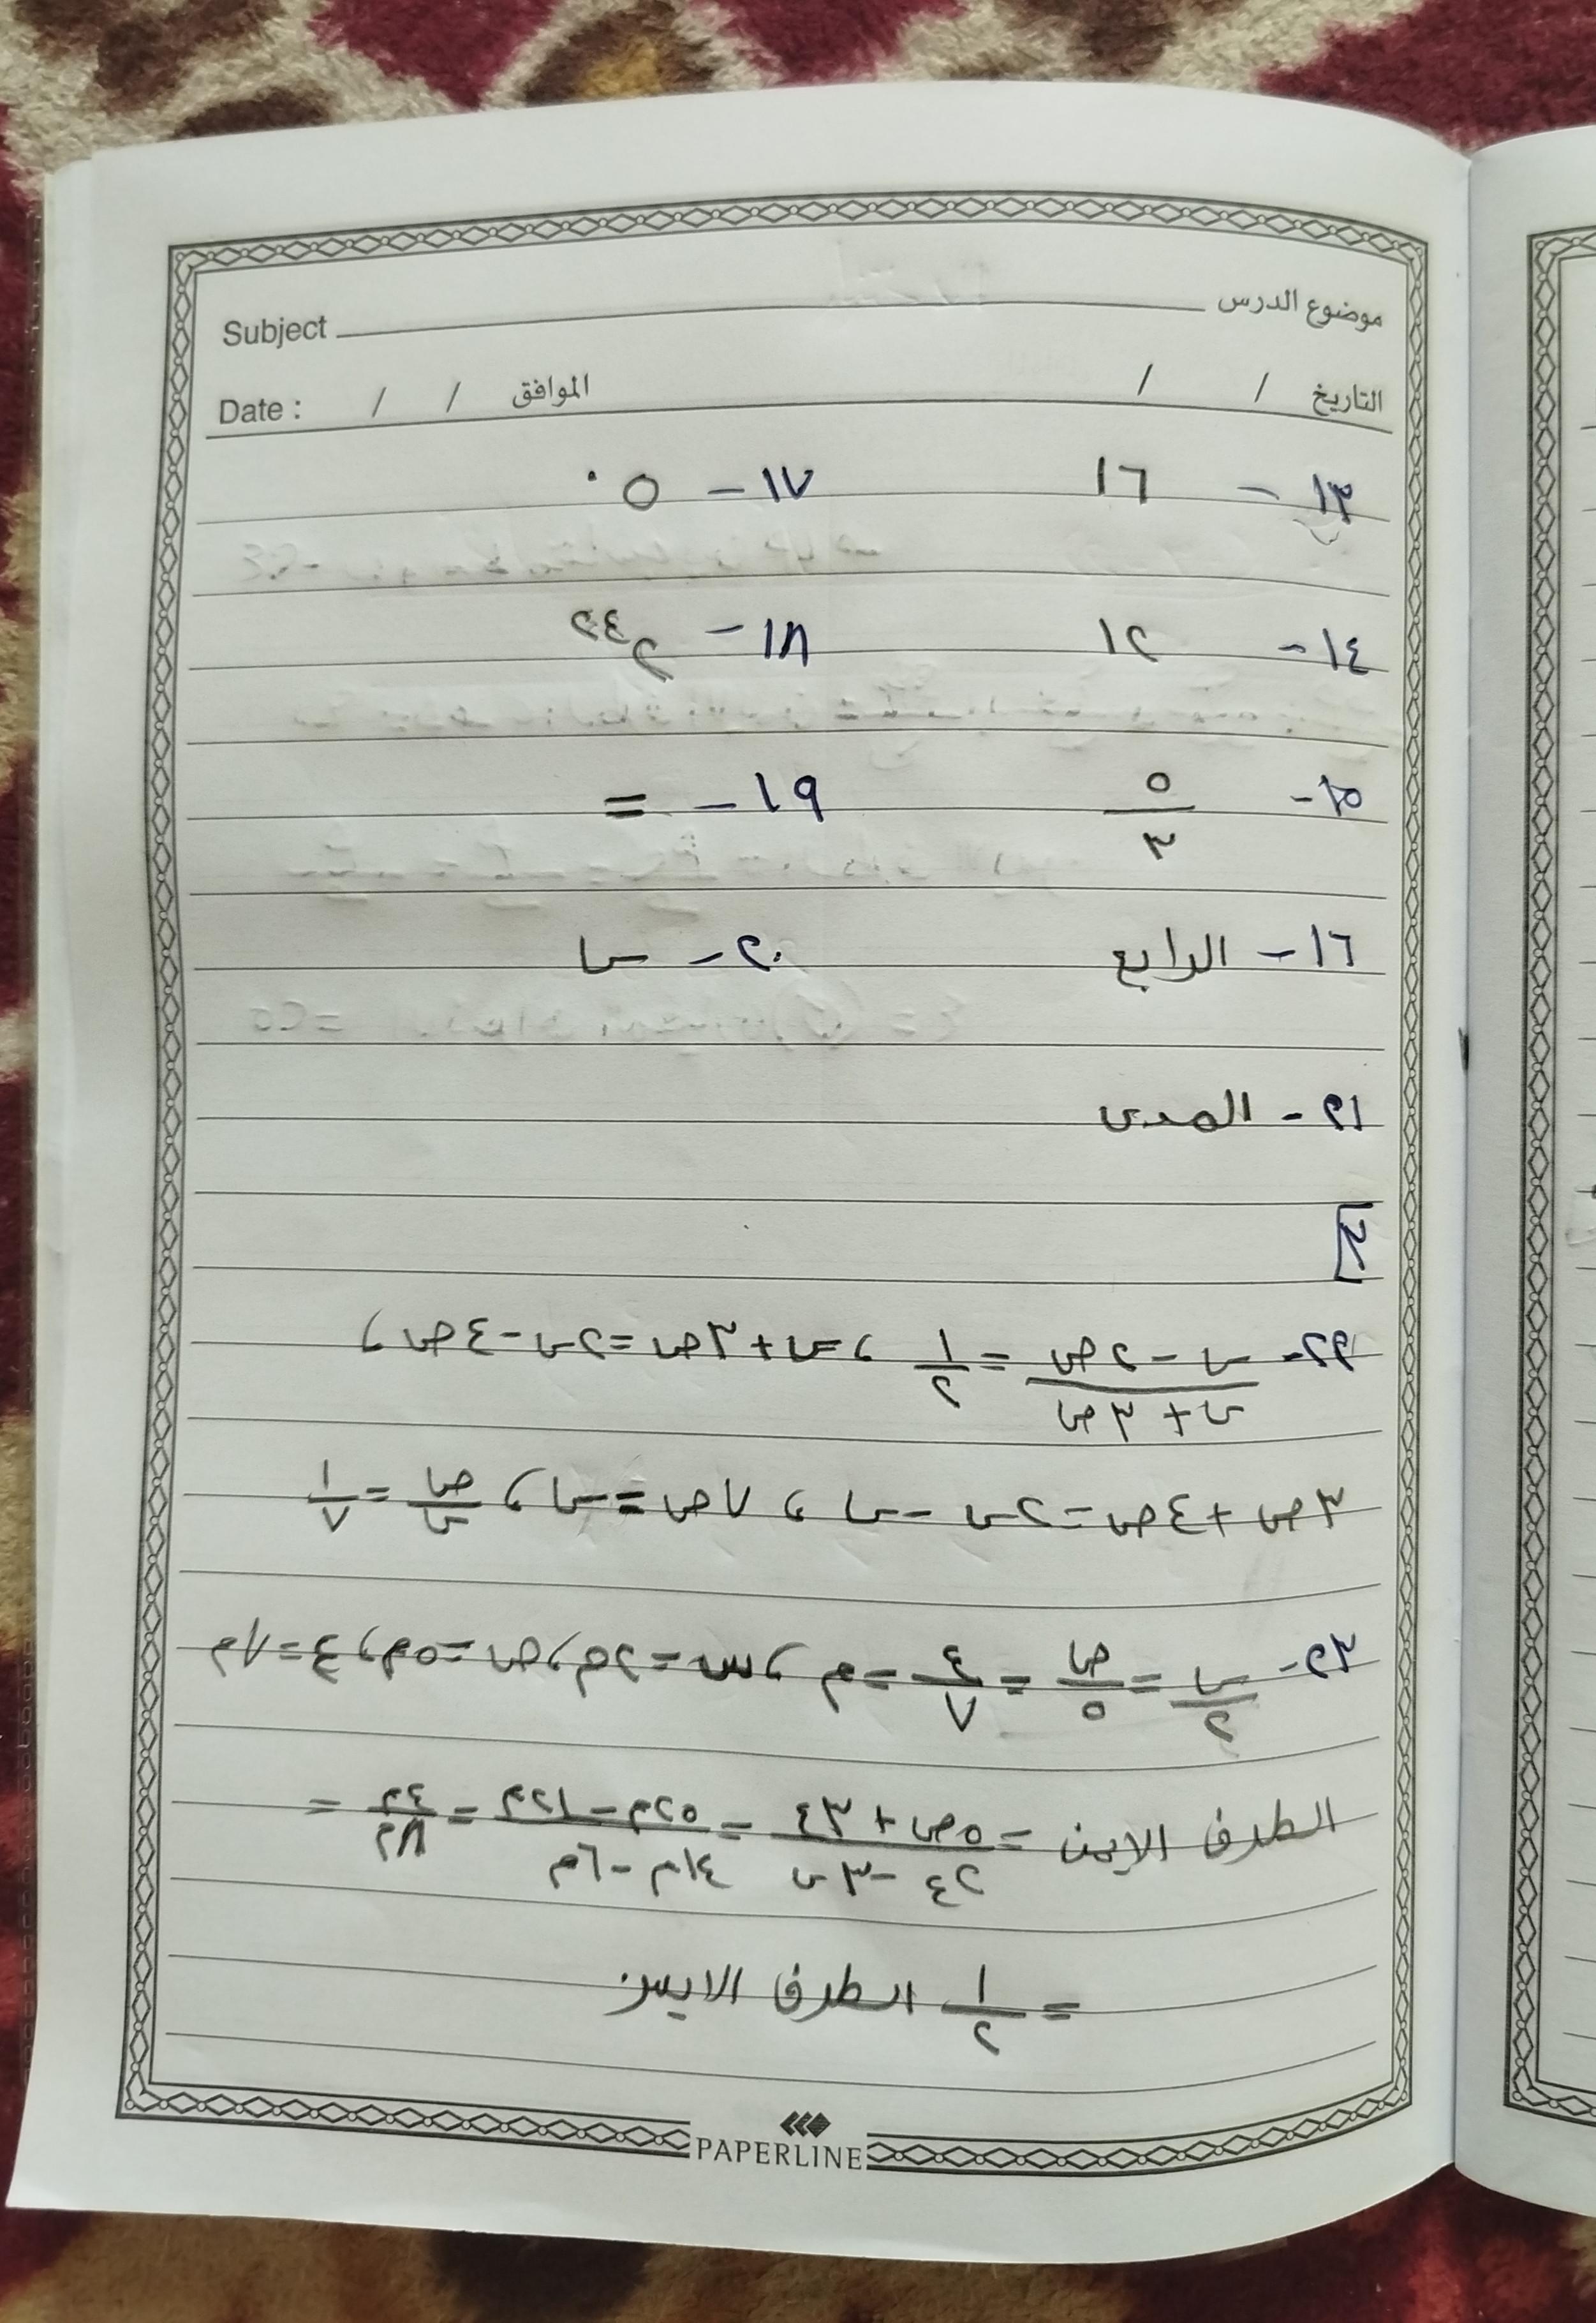 موضوع الدرس Subject
التاريخ / / الموافق / / Date :
١٣ - ١٦ ١٧ - ٥٠
١٤ - ١٢ ١٨ -
١٥ - ٥/٣ ١٩ - =
١٦ - الرابع ٢٠ - س
٢١ - المدى
٢
٢٢ - (س - ٢ص)/(س + ٣ص) = ١/٢ ، س + ٣ص = ٢س - ٤ص ،
٣ص + ٤ص = ٢س - س ، ٧ص = س ، ص/س = ١/٧
٢٣ - س/٢ = ص/٥ = ع/٧ = م ، س = ٢م ، ص = ٥م ، ع = ٧م
الطرف الايمن = (٥ص + ٣ع)/(٢ع - ٣س) = (٢٥م - ٢١م)/(١٤م - ٦م) = ٤م/٨م =
= ١/٢ الطرف الايسر
PAPERLINE